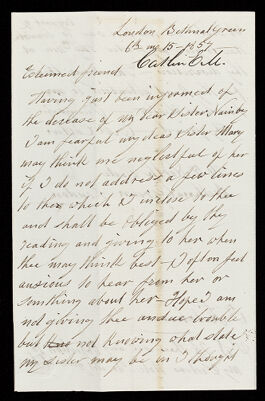 London Bethnal Green
6th mo 15 - 1857
Esteemed friend
Having just been informed of
the decease of my dear Sister Nainby
I am fearful my dear Sister Mary
may think me neglectful of her
if I do not address a few lines
to her which I inclose to thee
and shall be obliged by thy
reading and giving to her when
thee may think best I often feel
anxious to hear from her or
something about her Hope I am
not giving thee undue trouble
but not knowing what state
my Sister may be in I thought